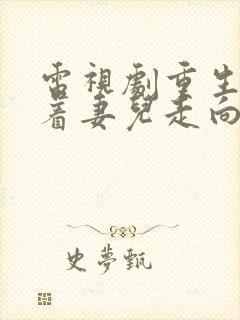 雷視劇重生
着妻兒走向
史夢甄